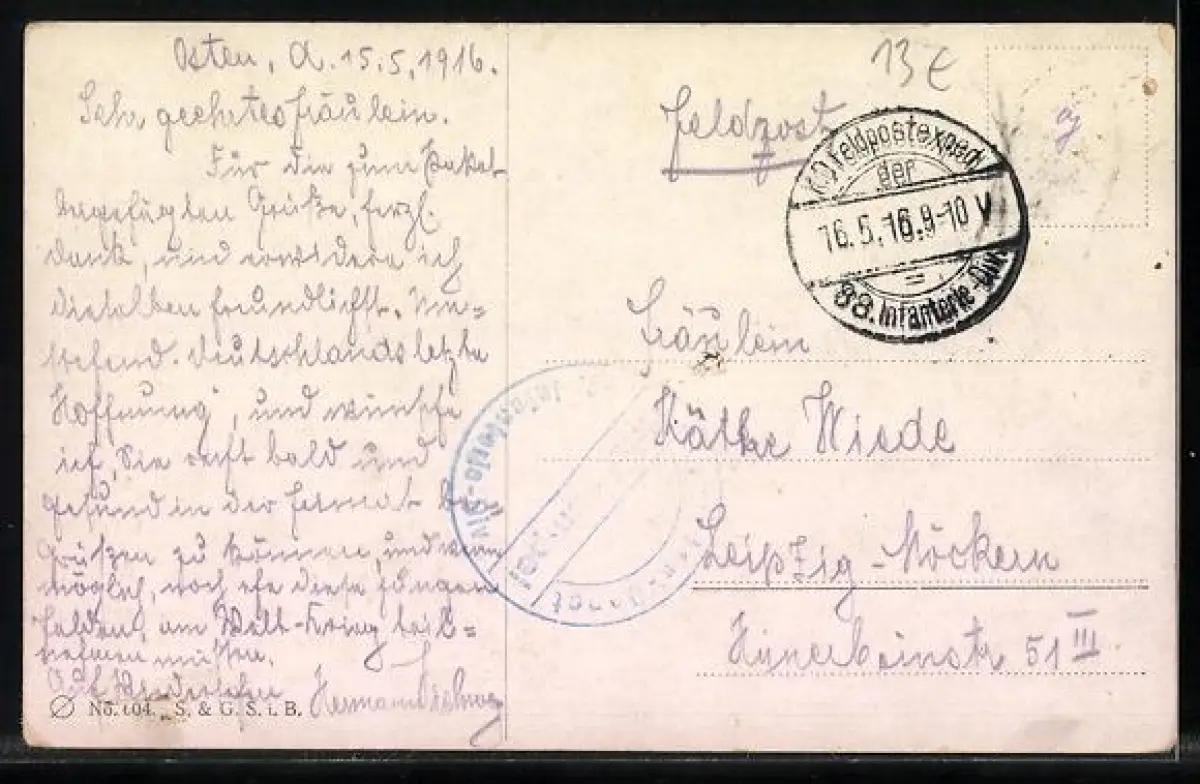 Osten, d. 15.5.1916.
Sehr geehrtes Fräulein.
Für die zum Paket
beigefügten Grüße, herzl.
Dank, und erwidere ich
dieselben freundlichst.
Deutschlands letzte
Hoffnung", und wünsche
ich, Sie recht bald und
gesund in der Heimat be-
grüßen zu können, und wenn
möglich, noch ehe diese jungen
Helden, am Welt-Krieg teil-
nehmen müssen.
Auf Wiedersehn
Hermann
No. 104. S. & G. S. i. B.
13 €
Feldpost
K.D. Feldpostexped.
der
16.5.16.9-10 V
88. Infanterie-Div.
Fräulein
Käthe Wiede
Leipzig-Möckern
51 III
Infanterie-Div.